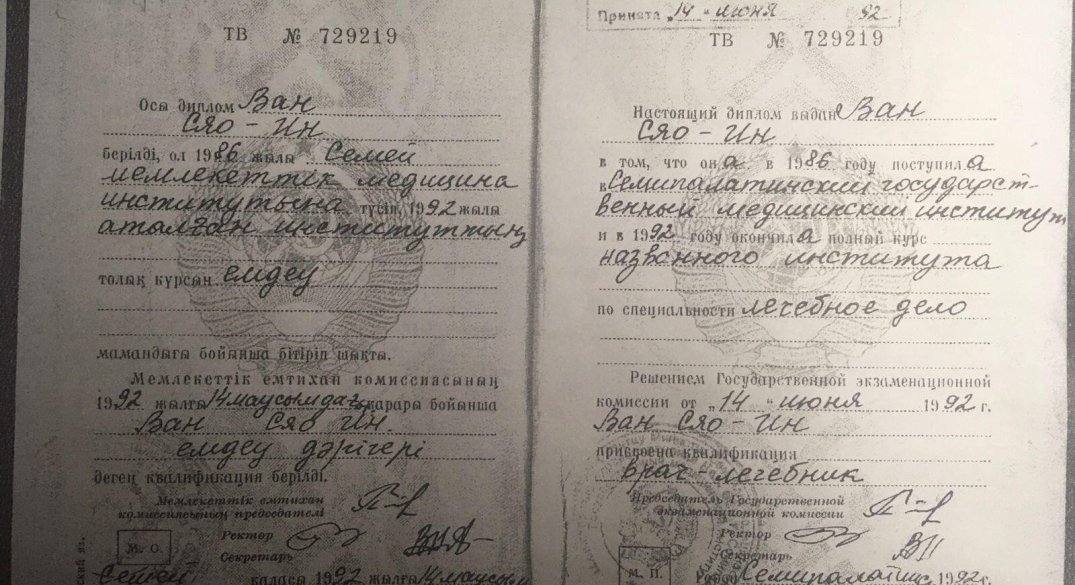 ТВ № 729219
Осы диплом Ван
Сяо - Ин
берілді, ол 1986 жылы Семей
мемлекеттік медицина
институтына түсіп, 1992 жылы
аталған институттың
толық курсын емдеу
мамандығы бойынша бітіріп шықты.
Мемлекеттік емтихан комиссиясының
1992 жылғы 14 маусымдағы қарары бойынша
Ван Сяо Ин
емдеу дәрігері
деген квалификация берілді.
Мемлекеттік емтихан
комиссиясының председателі
Ректор
Секретарь
М. О.
Семей қаласы 1992 жылғы 14 маусым
Принята „14 “ июня 92
ТВ № 729219
Настоящий диплом выдан Ван
Сяо - Ин
в том, что она в 1986 году поступила
в Семипалатинский государст-
венный медицинский институт
и в 1992 году окончила полный курс
названного института
по специальности лечебное дело
Решением Государственной экзаменационной
комиссии от „14 “ июня 1992 г.
Ван Сяо - Ин
присвоена квалификация
врач - лечебник
Председатель Государственной
экзаменационной комиссии
Ректор
Секретарь
М. П.
Город Семипалатинс 1992 г.